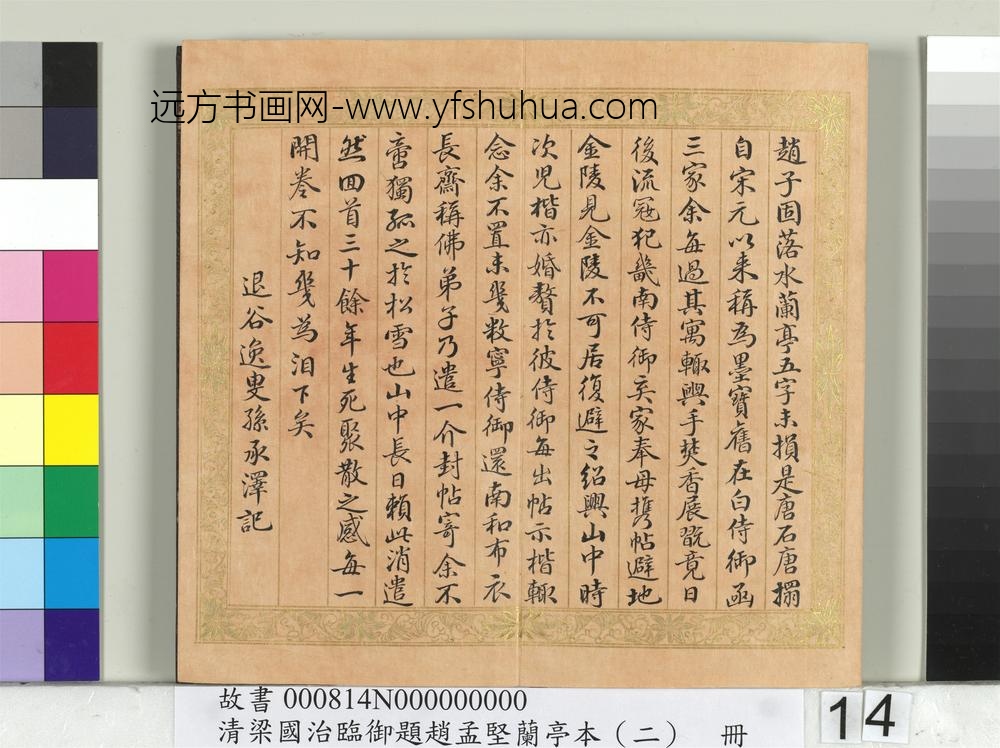 远方书画网-www.yfshuhua.com
趙子固落水蘭亭五字未損是唐石唐搨
自宋元以来稱為墨寶舊在白侍御函
三家余每過其寓輒與手焚香展翫竟日
後流冦犯畿南侍御弃家奉母携帖避地
金陵見金陵不可居復避之紹興山中時
次児楷亦婚贅於彼侍御每出帖示楷輒
念余不置未幾敉寧侍御還南和布衣
長齋稱佛弟子乃遣一介封帖寄余不
啻獨孤之於松雪也山中長日賴此消遣
然回首三十餘年生死聚散之感每一
開卷不知幾為泪下矣
退谷逸叟孫承澤記
故書 000814N000000000
清梁國治臨御題趙孟堅蘭亭本（二） 冊
14